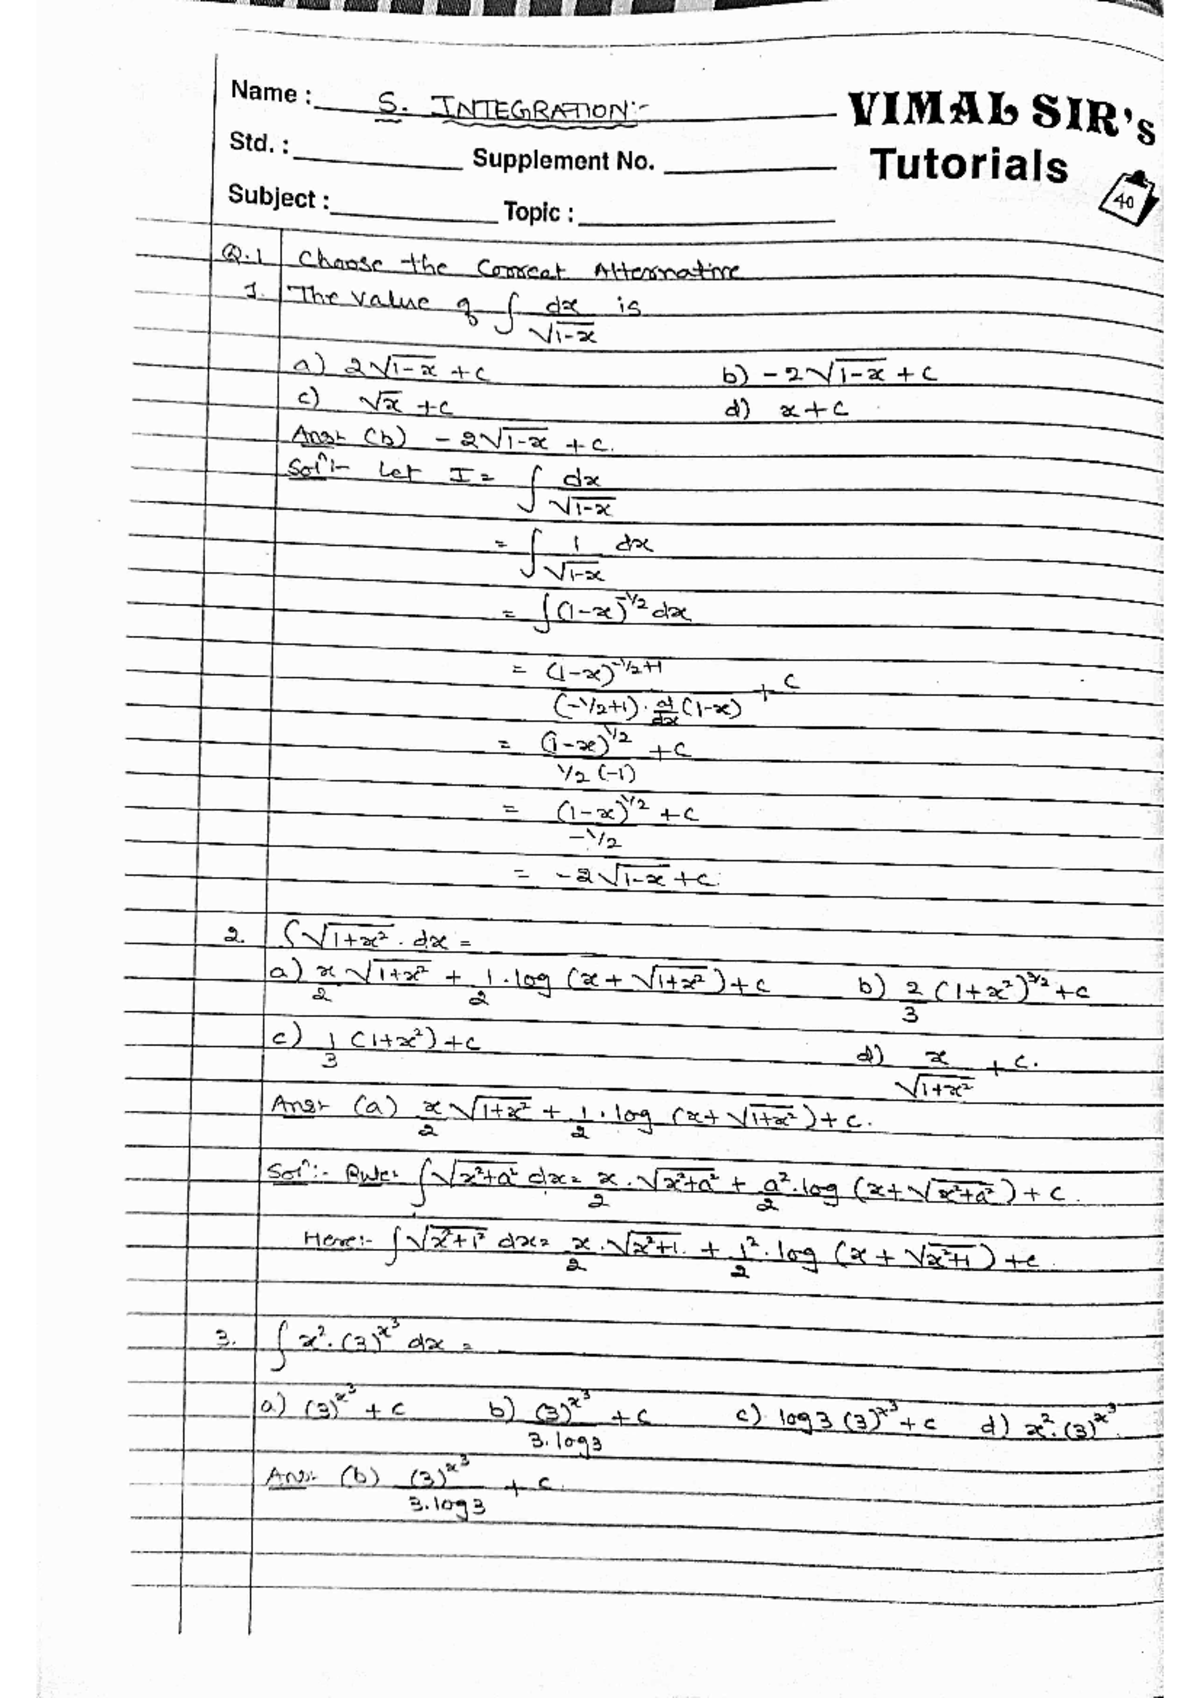 Name : S. INTEGRATION:-
VIMAL SIR's
Std. : Supplement No.
Tutorials
Subject : Topic :
40
Q.1 Choose the Correct Alternative
1. The value of ∫ dx/√(1-x) is
a) 2√(1-x) + c b) -2√(1-x) + c
c) √x + c d) x + c
Ans:- (b) -2√(1-x) + c.
Solⁿ:- Let I = ∫ dx/√(1-x)
= ∫ 1/√(1-x) dx
= ∫ (1-x)^(-1/2) dx
= (1-x)^(-1/2+1) / ((-1/2+1) · d/dx (1-x)) + c
= (1-x)^(1/2) / (1/2 (-1)) + c
= (1-x)^(1/2) / (-1/2) + c
= -2√(1-x) + c.
2. ∫ √(1+x²) · dx =
a) x/2 √(1+x²) + 1/2 · log (x + √(1+x²)) + c b) 2/3 (1+x²)^(3/2) + c
c) 1/3 (1+x²) + c d) x/√(1+x²) + c.
Ans:- (a) x/2 √(1+x²) + 1/2 · log (x + √(1+x²)) + c.
Solⁿ:- Rule:- ∫ √(x²+a²) dx = x/2 · √(x²+a²) + a²/2 · log (x + √(x²+a²)) + c.
Here:- ∫ √(x²+1²) dx = x/2 · √(x²+1) + 1²/2 · log (x + √(x²+1)) + c
3. ∫ x² · (3)^x³ dx =
a) (3)^x³ + c b) (3)^x³ / 3.log3 + c c) log3 (3)^x³ + c d) x² · (3)^x³
Ans:- (b) (3)^x³ / 3.log3 + c.